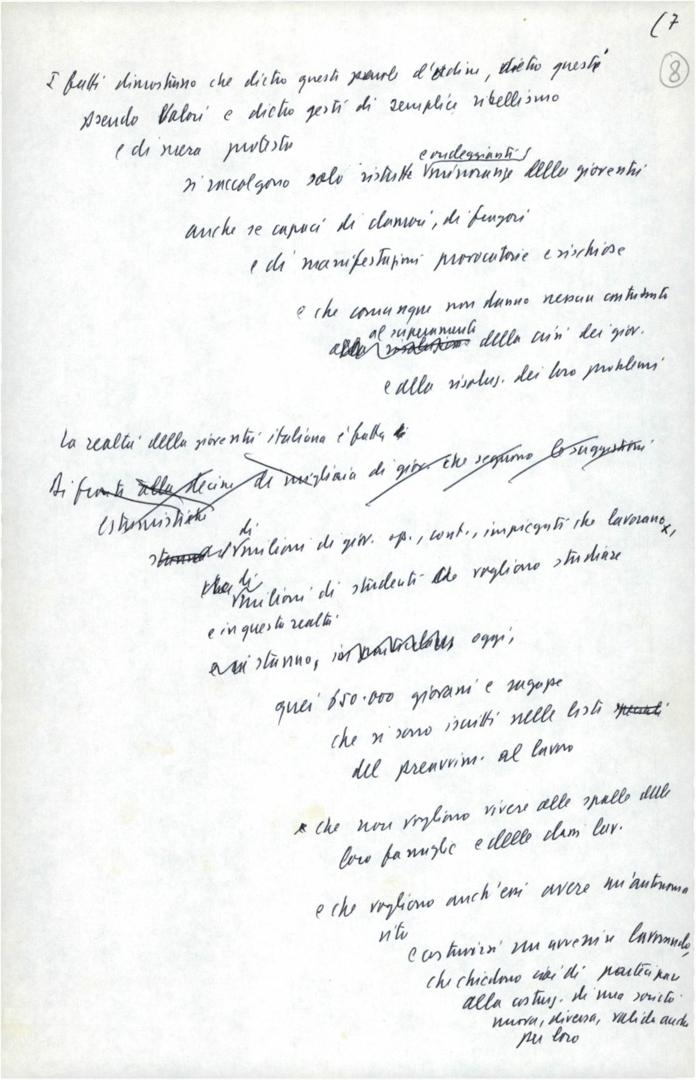 (7
8
I fatti dimostrano che dietro queste parole d'ordine, dietro questi
pseudo valori e dietro gesti di semplice ribellismo
e di mera protesta
e ondeggianti
si raccolgono solo ristrette minoranze della gioventù
anche se capaci di clamori, di fragori
e di manifestazioni provocatorie e rischiose
e che comunque non danno nessun contributo
al superamento
alla della crisi dei giov.
e alla risoluz. dei loro problemi
La realtà della gioventù italiana è fatta
Di fronte alla decine di migliaia di giov. che seguono le suggestioni
estremistiche
di
stanno milioni di giov. op., cont., impiegati che lavorano,
di
milioni di studenti che vogliono studiare
e in questa realtà
stanno, in particolare oggi,
quei 650.000 giovani e ragazze
che si sono iscritti nelle liste speciali
del preavvim. al lavoro
che non vogliono vivere alle spalle delle
loro famiglie e delle classi lav.
e che vogliono anch'essi avere un'autonoma
vita
e costruirsi un avvenire lavorando,
che chiedono così di partecipare
alla costruz. di una società
nuova, diversa, valida anche
per loro